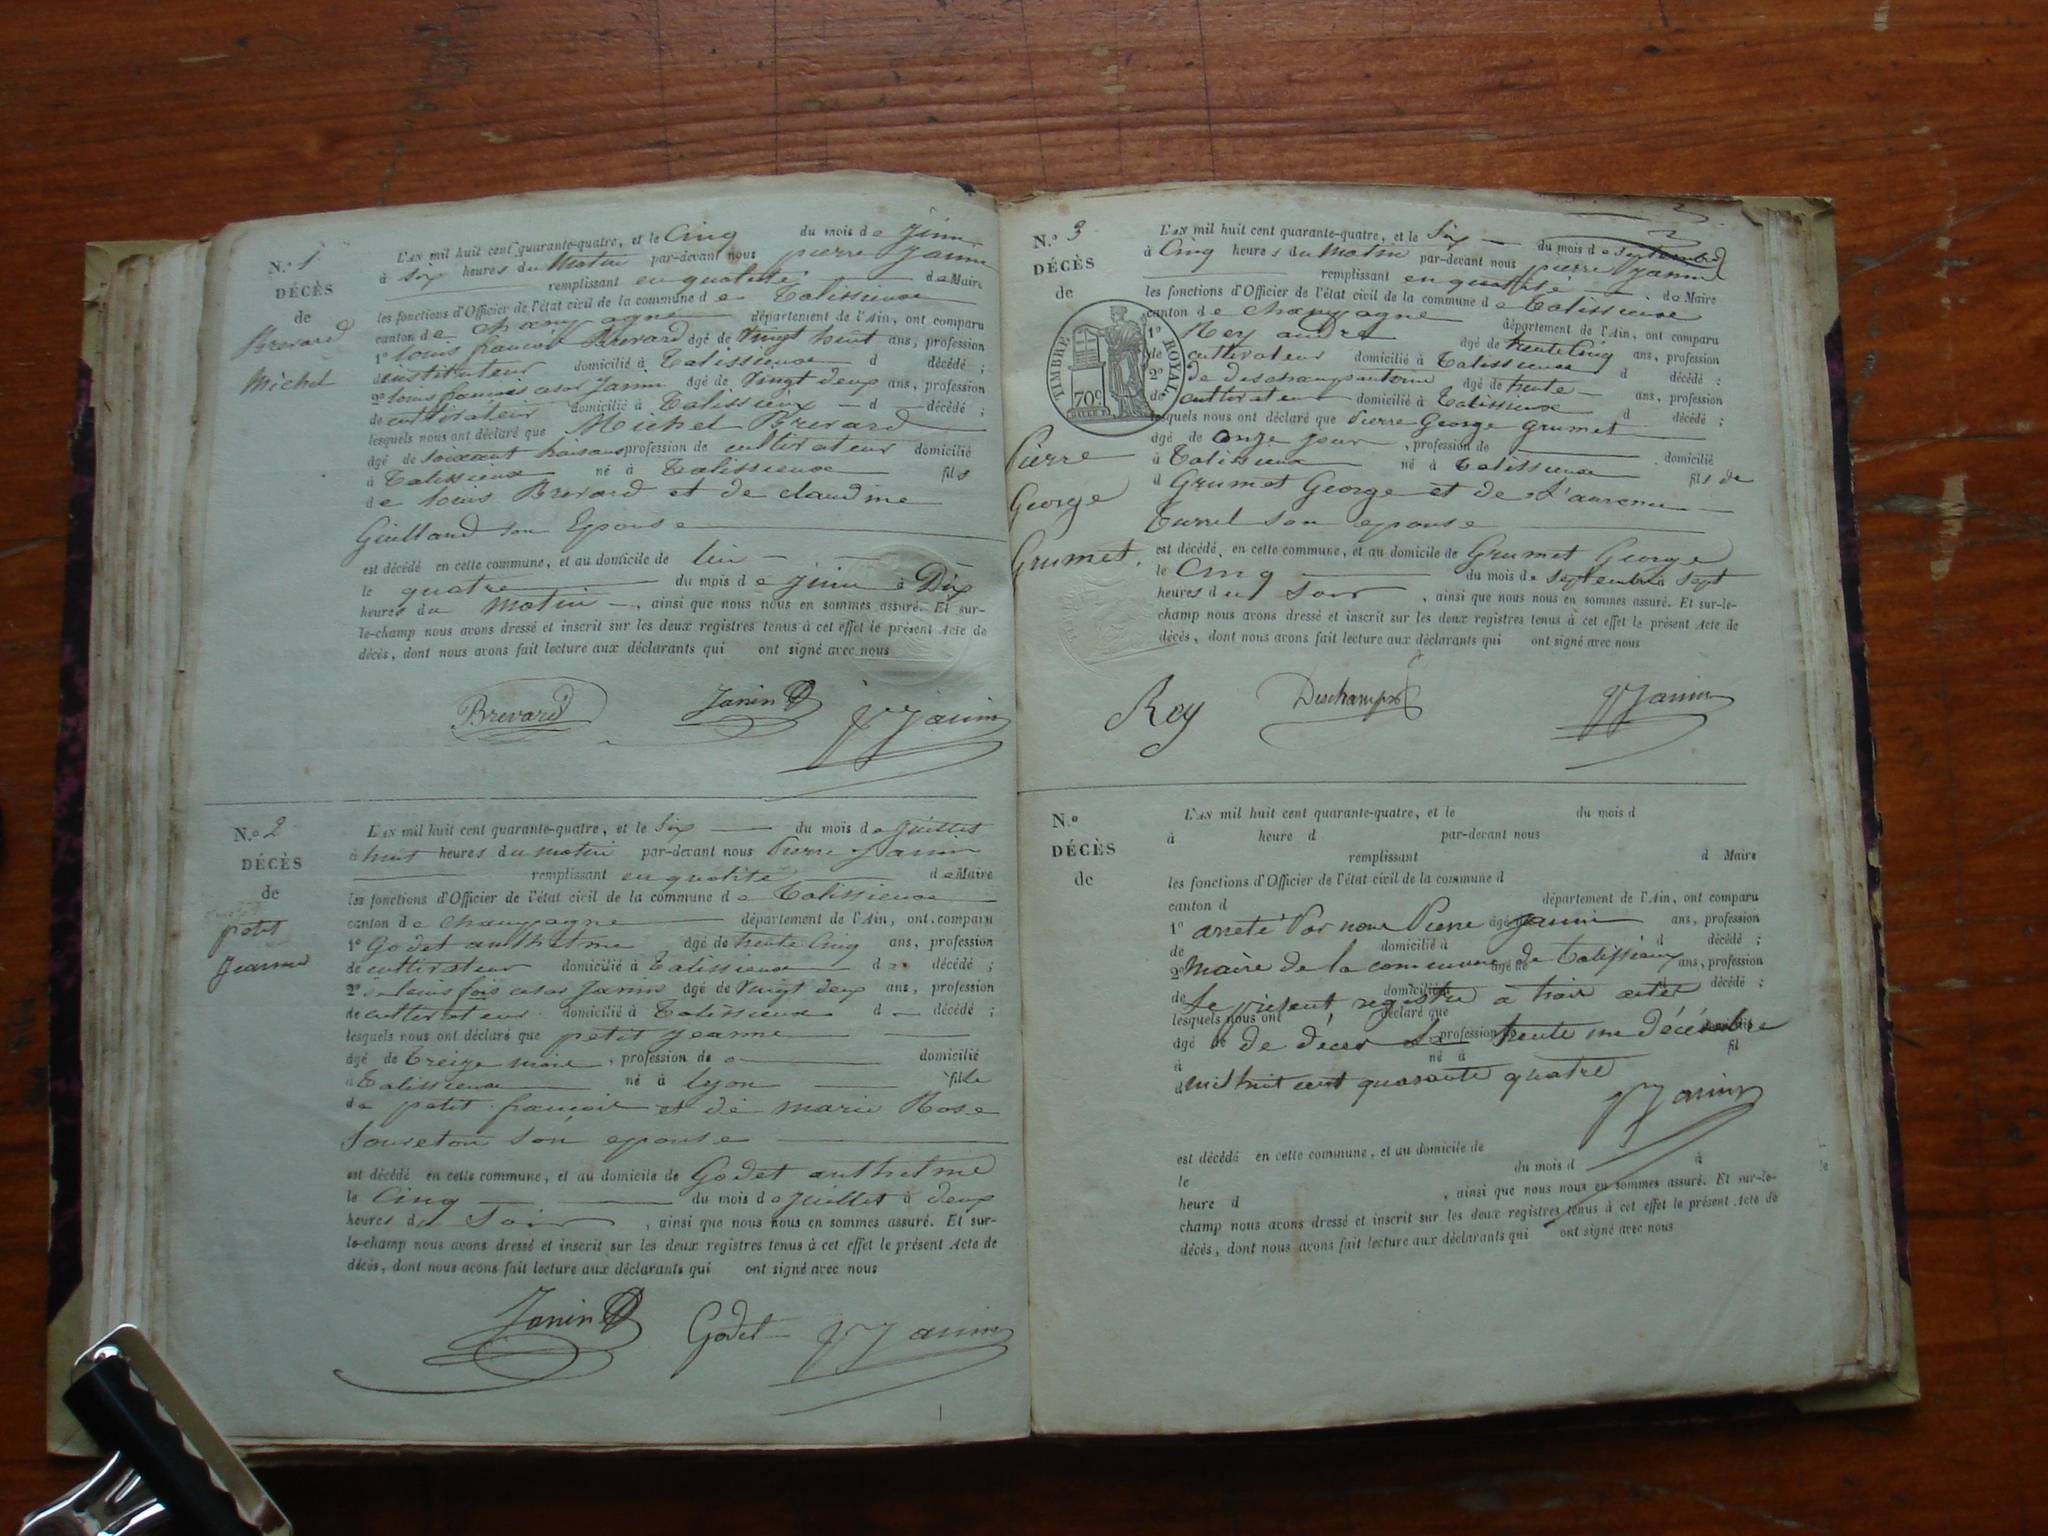 N.º 1
DÉCÈS
de
Brevard
Michel
L'AN mil huit cent quarante-quatre, et le Cinq du mois de Jiun
à six heures du Matin par-devant nous pierre Janin
remplissant en qualité de Maire
les fonctions d'Officier de l'état civil de la commune de Talissieux
canton de champagne département de l'Ain, ont comparu
1º louis françois Brevard âgé de vingt huit ans, profession
d'instituteur domicilié à Talissieux d décédé ;
2º louis françois cesar Janin âgé de vingt deux ans, profession
de cultivateur domicilié à Talissieux d décédé ;
lesquels nous ont déclaré que Michel Brevard
âgé de soixant trois ans profession de cultivateur domicilié
à Talissieux né à Talissieux fils
de louis Brevard et de claudine
Guilland son Epouse
est décédé en cette commune, et au domicile de lui
le quatre du mois de jiun à Dix
heures du Matin, ainsi que nous nous en sommes assuré. Et sur-
le-champ nous avons dressé et inscrit sur les deux registres tenus à cet effet le présent Acte de
décès, dont nous avons fait lecture aux déclarants qui ont signé avec nous
Brevard Janin Janin
N.º 2
DÉCÈS
de
petit
Jeanne
L'AN mil huit cent quarante-quatre, et le Six du mois de Juillet
à huit heures du matin par-devant nous Pierre Janin
remplissant en qualité de Maire
les fonctions d'Officier de l'état civil de la commune de Talissieux
canton de champagne département de l'Ain, ont comparu
1º Godet anthelme âgé de trente Cinq ans, profession
de cultivateur domicilié à Talissieux d décédé ;
2º louis fois cesar Janin âgé de vingt deux ans, profession
de cultivateur domicilié à Talissieux d décédé ;
lesquels nous ont déclaré que petit Jeanne
âgé de treize mois, profession de domicilié
à Talissieux né à lyon fille
de petit françois et de marie Rose
son epouse
est décédé en cette commune, et au domicile de Godet anthelme
le Cinq du mois de Juillet à deux
heures du Soir, ainsi que nous nous en sommes assuré. Et sur-
le-champ nous avons dressé et inscrit sur les deux registres tenus à cet effet le présent Acte de
décès, dont nous avons fait lecture aux déclarants qui ont signé avec nous
Janin Godet Janin
N.º 3
DÉCÈS
de
TIMBRE ROYAL
70c
Pierre
George
Grumet.
L'AN mil huit cent quarante-quatre, et le Six du mois de septembre
à Cinq heures du Matin par-devant nous pierre Janin
remplissant en qualité de Maire
les fonctions d'Officier de l'état civil de la commune de Talissieux
canton de champagne département de l'Ain, ont comparu
1º Rey andré âgé de trente Cinq ans, profession
de cultivateur domicilié à Talissieux d décédé ;
2º de deschamps antoine âgé de trente ans, profession
de cultivateur domicilié à Talissieux d décédé ;
lesquels nous ont déclaré que Pierre George grumet
âgé de onze jour, profession de domicilié
à Talissieux né à Talissieux fils de
d Grumet George et de
son epouse
est décédé, en cette commune, et au domicile de Grumet George
le Cinq du mois de septembre à sept
heures du Soir, ainsi que nous nous en sommes assuré. Et sur-le-
champ nous avons dressé et inscrit sur les deux registres tenus à cet effet le présent Acte de
décès, dont nous avons fait lecture aux déclarants qui ont signé avec nous
Rey Deschamps Janin
N.º
DÉCÈS
de
L'AN mil huit cent quarante-quatre, et le du mois d
à heure d par-devant nous
remplissant d Maire
les fonctions d'Officier de l'état civil de la commune d
canton d département de l'Ain, ont comparu
1º arreté Par nous Pierre âgé de Janin ans, profession
de domicilié à d décédé ;
2º Maire de la commune de âgé de Talissieux ans, profession
de Le présent registre domicilié à a trois actes décédé ;
lesquels nous ont déclaré que
âgé de de décès Le profession trente un décembre
à né à fil
d mil huit cent quarante quatre
Janin
est décédé en cette commune, et au domicile de
le du mois d à
heure d , ainsi que nous nous en sommes assuré. Et sur-le-
champ nous avons dressé et inscrit sur les deux registres tenus à cet effet le présent Acte de
décès, dont nous avons fait lecture aux déclarants qui ont signé avec nous